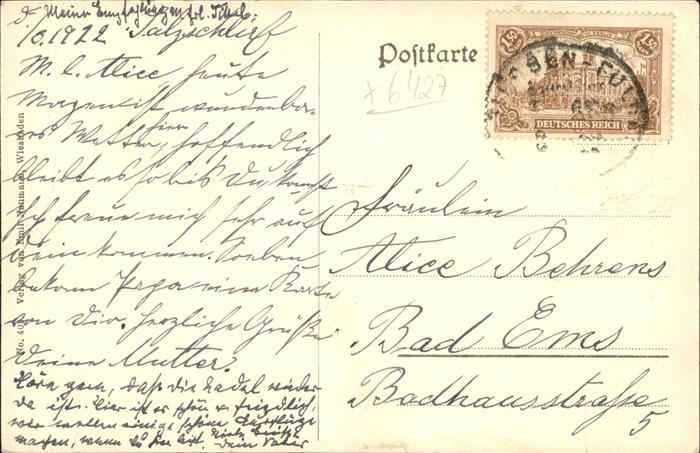 d. Meine Empfehlungen
10.1922 Salzschlirf
M. l. Alice, heute
Morgen ist wunderba-
res Wetter hier, hoffendlich
bleibt es so bis Du kommst
Ich freue mich sehr auf
Dein kommen. Soeben
bekam Papa eine Karte
von Dir. Herzliche Grüße
Deine Mutter.
Höre gern, dass die Nadel wieder
da ist. Hier ist es schön u. friedlich,
wir wollen einige schöne Ausflüge
machen, wenn du hier bist. Dein Vater
Verlag von Emil Neumann, Wiesbaden
Postkarte
x 6427
1,50 1,50
DEUTSCHES REICH
BEN-FUL
Fräulein
Alice Behrens
Bad Ems
Badhausstraße
5